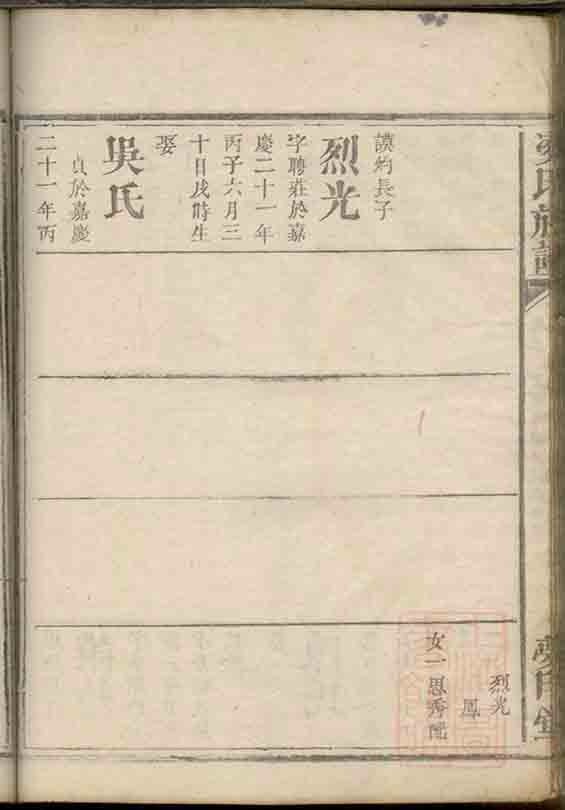 謨鈞長子
烈光
字聘莊於嘉
慶二十一年
丙子六月三
十日戌時生
娶
吳氏
貞於嘉慶
二十一年丙
烈光
鳳
女一恩秀配